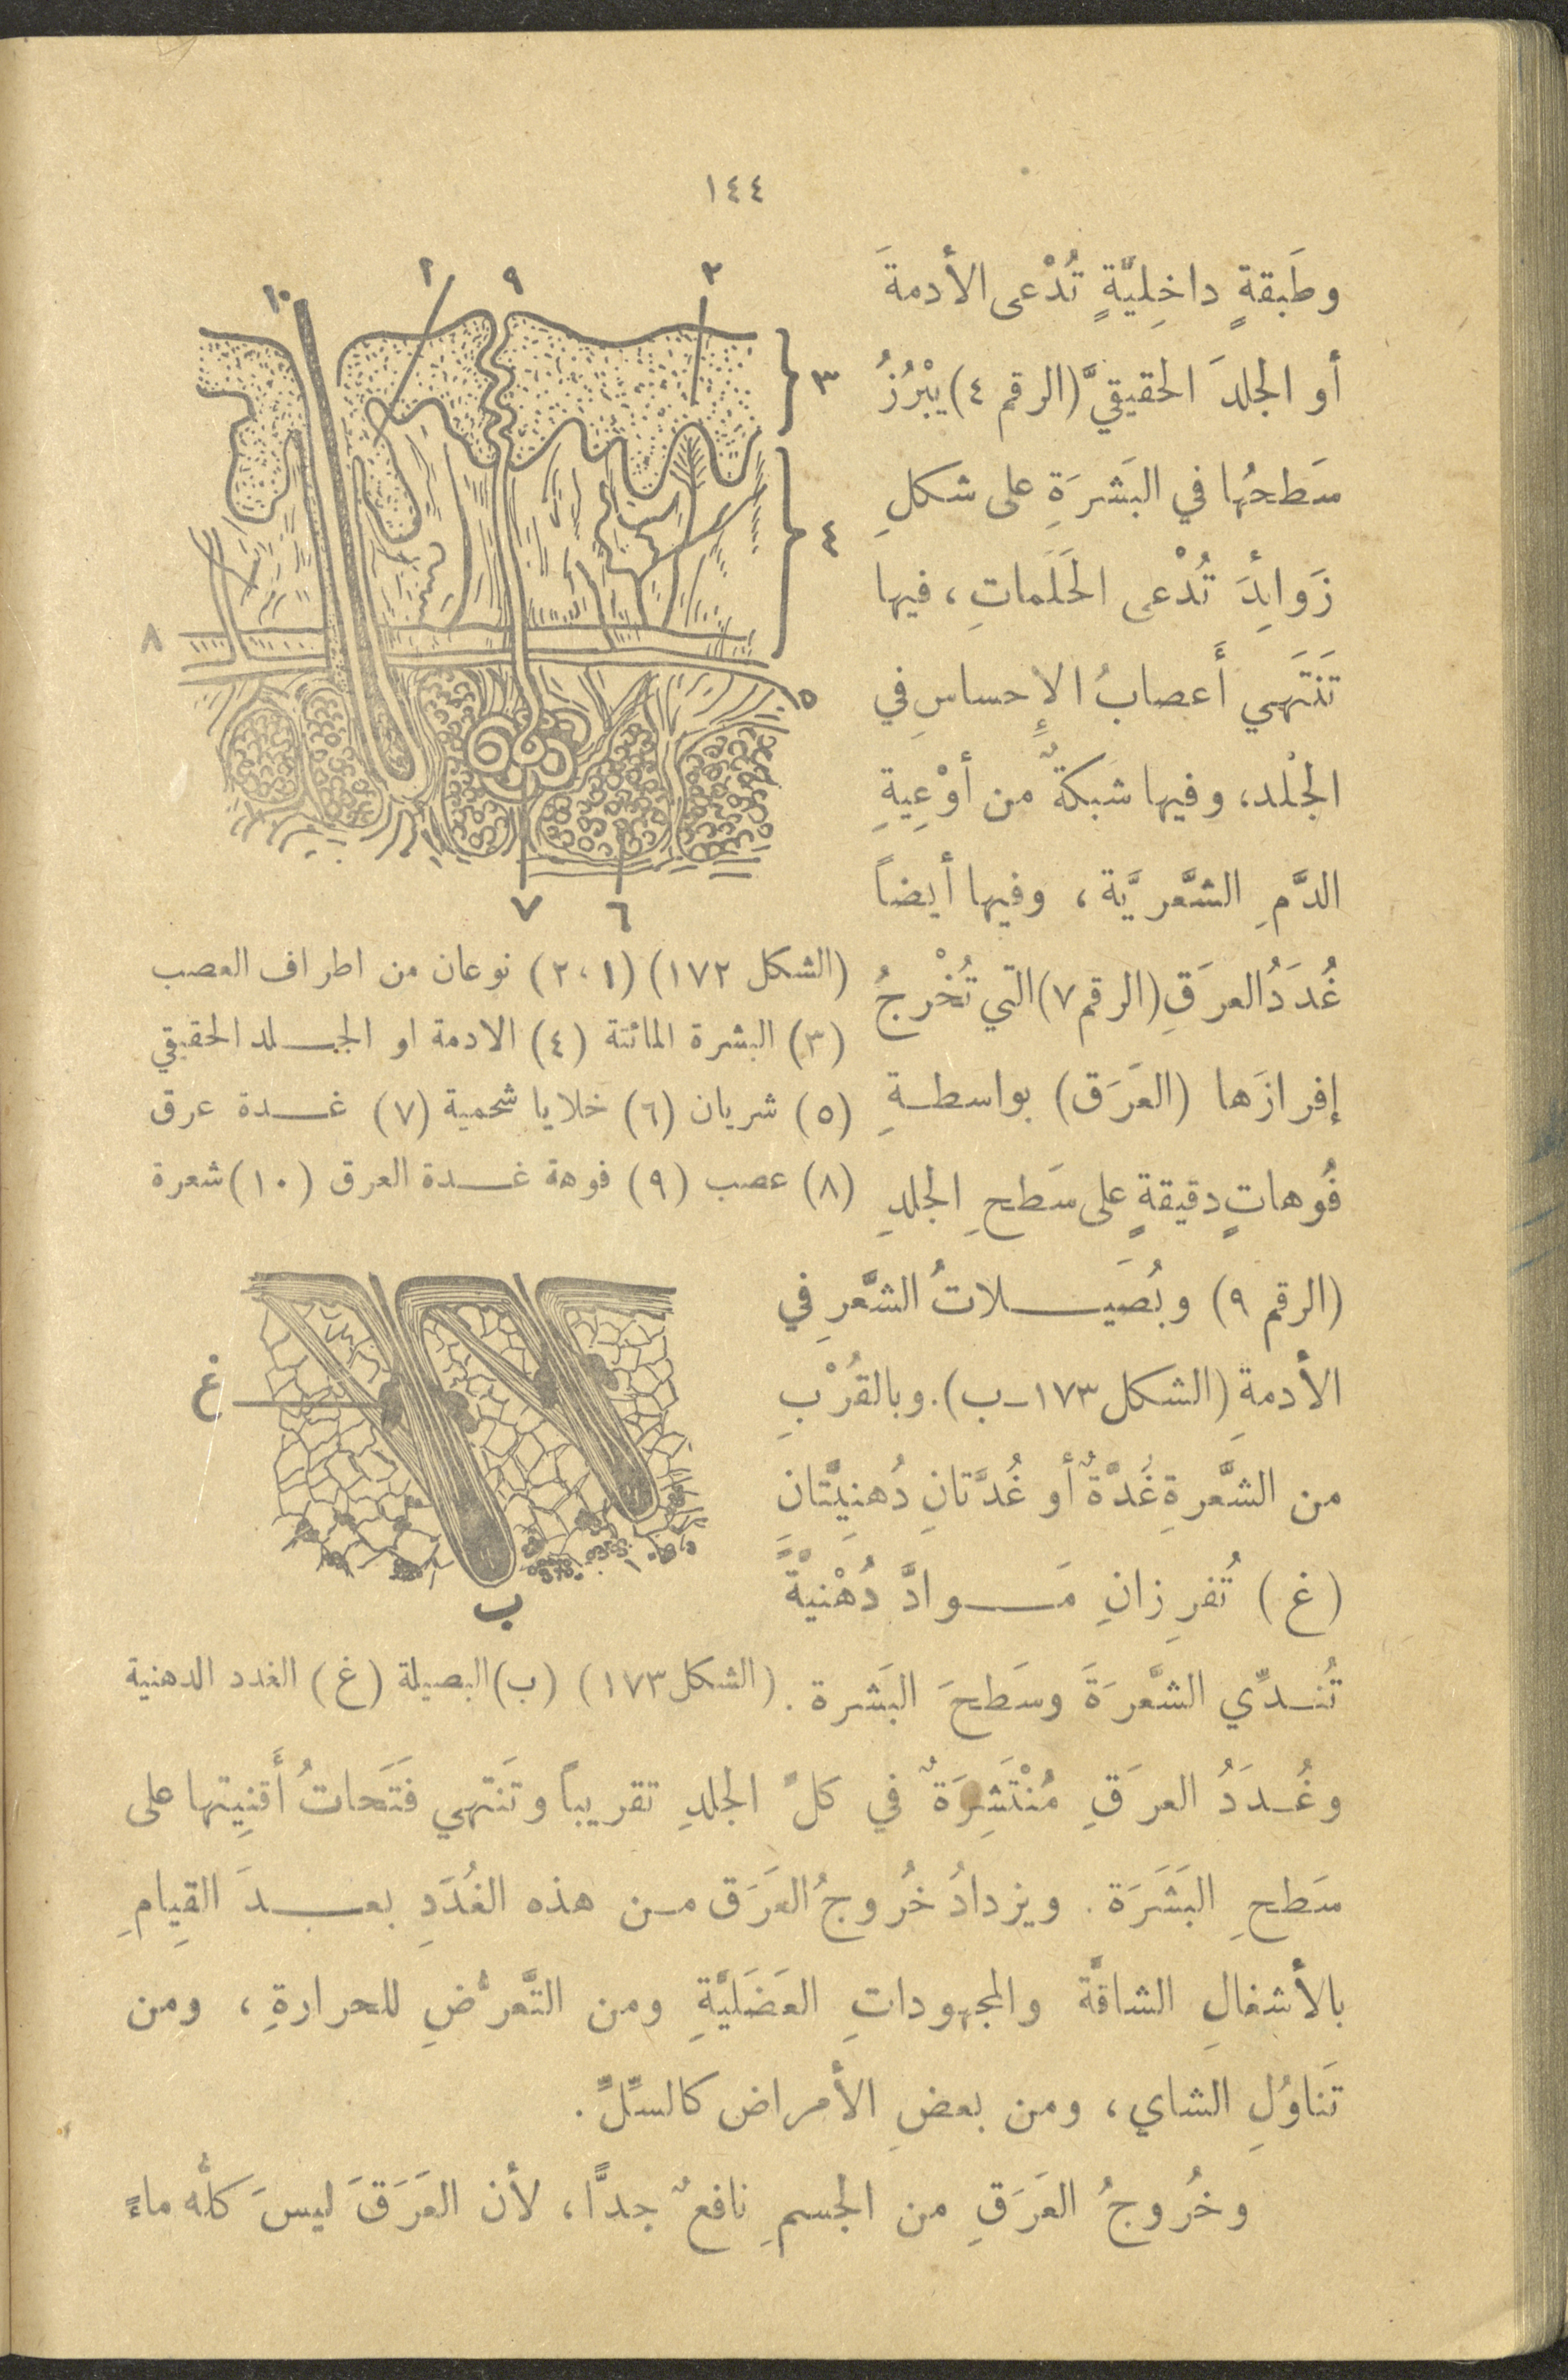 ١٤٤
وطَبقةٍ داخِليَّةٍ تُدْعى الأدمةَ
أو الجلدَ الحقيقيَّ (الرقم ٤) يبْرُزُ
سَطحُها في البَشرَةِ على شكلِ
زَوائِدَ تُدْعى الحَلَمَاتِ، فيها
تَنتَهي أَعصابُ الإِحساسِ في
الجْلد، وفيها شبكةٌ من أوْعِيةِ
الدَّمِ الشَّعريَّة، وفيها أيضاً
غُدَدُ العرَقِ (الرقم ٧) التي تُخْرجُ
إفرازَها (العَرَق) بواسطةِ
فُوهاتٍ دقيقةٍ على سَطحِ الجلدِ
(الرقم ٩) وبُصَيلاتُ الشَّعرِ في
الأدمةِ (الشكل ١٧٣ـب). وبالقُرْبِ
من الشَّعرةِ غُدَّةٌ أو غُدَّتانِ دُهنِيَّتانِ
(غ) تُفرِزانِ مَوادَّ دُهْنيَّةً
تُندِّي الشَّعرَةَ وسَطحَ البَشرة.
١٠
١
٩
٢
٣
٤
٨
٥
٧
٦
(الشكل ١٧٢) (٢،١) نوعان من اطراف العصب
(٣) البشرة المائتة (٤) الادمة او الجلد الحقيقي
(٥) شريان (٦) خلايا شحمية (٧) غدة عرق
(٨) عصب (٩) فوهة غدة العرق (١٠) شعرة
غ
ب
(الشكل ١٧٣) (ب) البصيلة (غ) الغدد الدهنية
وغُدَدُ العرَقِ مُنْتَشِرَةٌ في كلّ الجلدِ تقريباً وتَنتهي فَتَحاتُ أَقنِيتها على
سَطحِ البَشَرَة. ويزدادُ خُروجُ العَرَق من هذه الغُدَدِ بعدَ القِيامِ
بالأشغالِ الشاقَّة والمجهوداتِ العَضَليَّةِ ومن التَّعرُّضِ للحرارةِ، ومن
تَناوُلِ الشاي، ومن بعضِ الأمراض كالسِّلِّ.
وخُروجُ العَرَقِ من الجسمِ نافعٌ جدًّا، لأن العَرَقَ ليسَ كلُّه ماءً